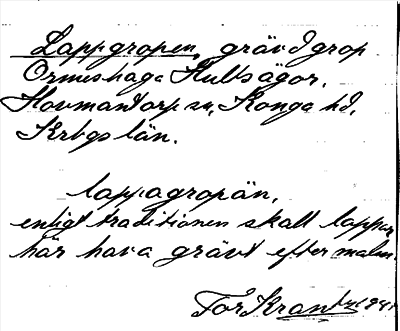 Lappgropen, grävd grop
Ormeshaga Hults ägor,
Hovmantorp sn, Konga hd,
Krbgs län.
lappagropän,
enligt traditionen skall lappar
här hava grävt efter malm.
Tor Krantz 1941